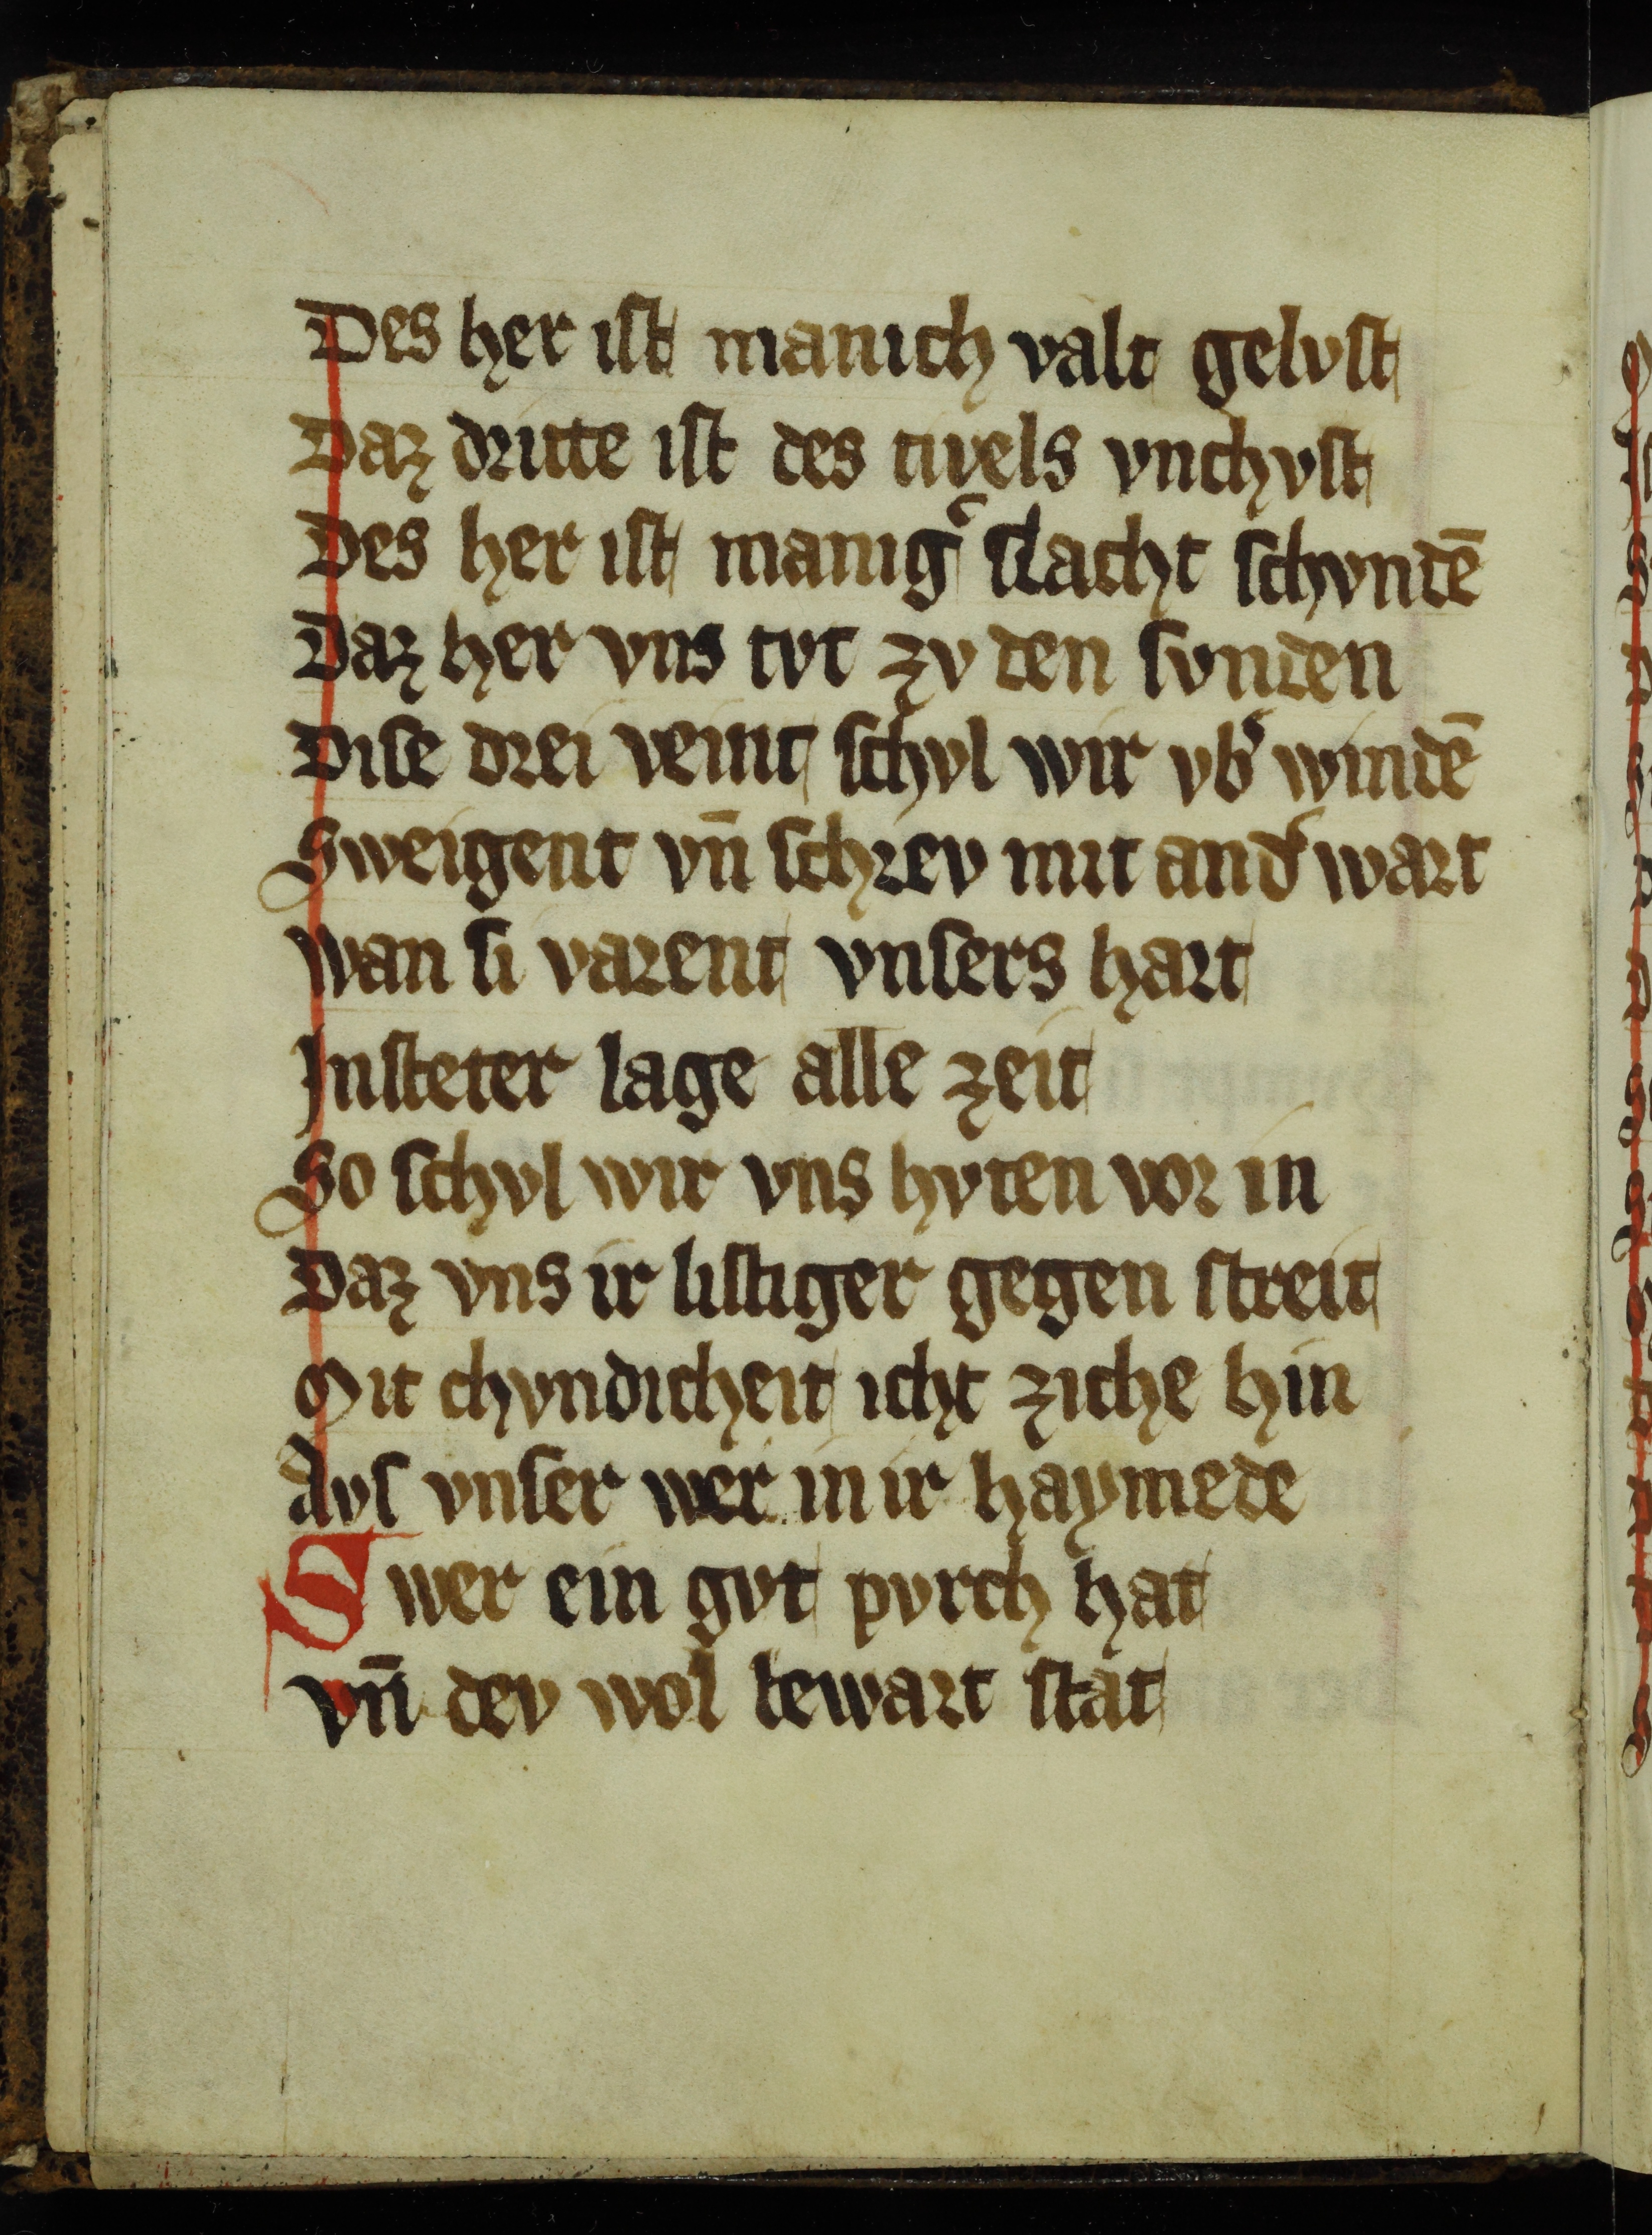 Des her ist manich valt gelvst
Daz dritte ist des tivels vnchvst
Des her ist manig͛ slacht schvndē
Daz her vns tvt zv den svnden
Dise drei veint schvl wir vb͛ windē
Sweigent vn̄ schrev mit and͛ wart
Wan si varent vnsers hart
In steter lage alle zeit
So schvl wir vns hvten vor in
Daz vns ir listiger gegen streit
Mit chvndicheit icht ziche hin
Avs vnser wer in ir haymede
Swer ein gvt pvrch hat
Vn̄ dev wol bewart stat